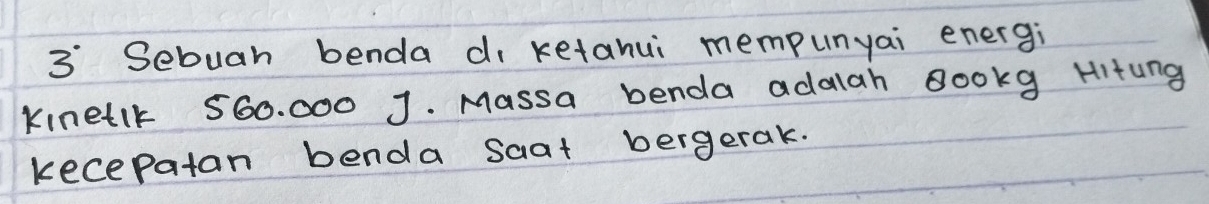 3. Sebuah benda di ketahui mempunyai energi
kinetik 560.000 J. Massa benda adalah 800kg Hitung
kecepatan benda saat bergerak.